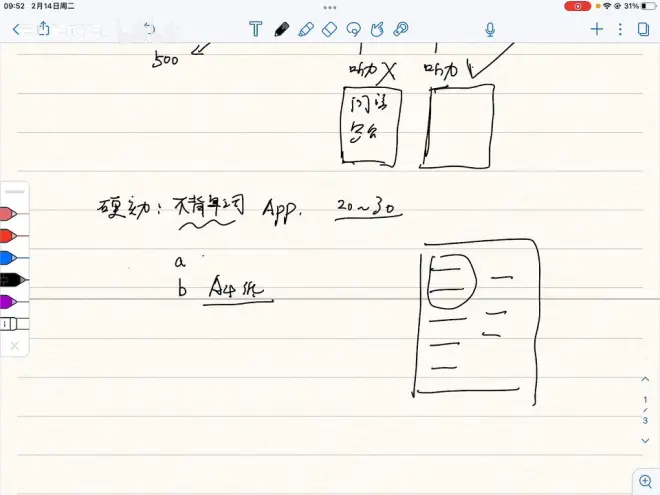 09:52 2月14日周二
31%
500
听力 X 听力
阅读
写作
硬实力: 不背单词 App. 20~30
a
b A4纸
1
/
3